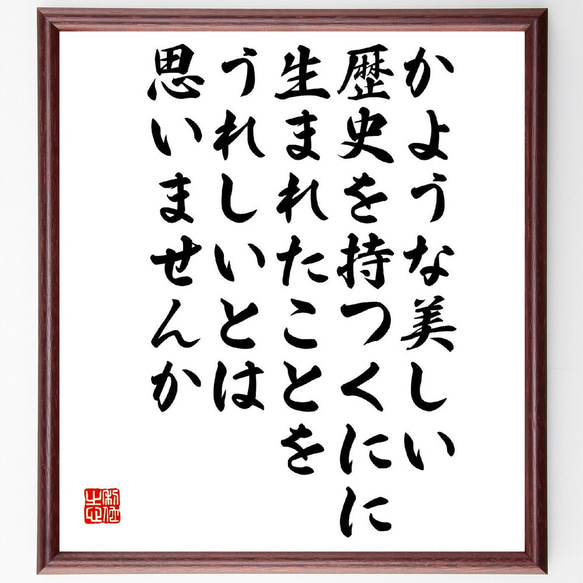 かような美しい
歴史を持つくにに
生まれたことを
うれしいとは
思いませんか